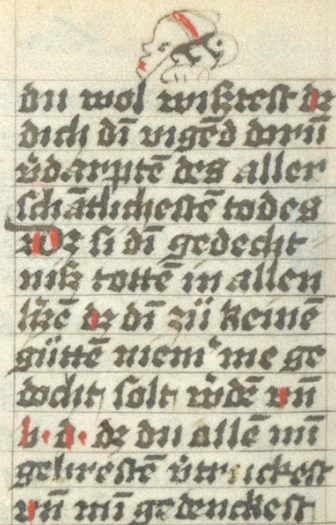 du wol wiſtest dz
dich dī vigēd darū
v̊darptē des aller
schātlichestē todes
Wz si dī gedecht
niß tottē in allen
h̊zē dz dī zü keinē
güttē niem͛me ge
docht solt ẘdē vn̄
h · d · dz du allē mī
gebrestē v̊truckest
vn̄ mī gedenckest